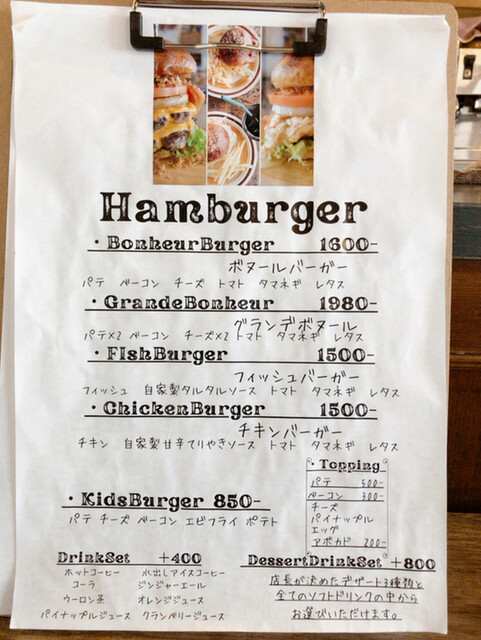 Hamburger
・BonheurBurger 1600-
ボヌールバーガー
パテ ベーコン チーズ トマト タマネギ レタス
・GrandeBonheur 1980-
グランデボヌール
パテ×2 ベーコン チーズ×2 トマト タマネギ レタス
・FIshBurger 1500-
フィッシュバーガー
フィッシュ 自家製タルタルソース トマト タマネギ レタス
・ChickenBurger 1500-
チキンバーガー
チキン 自家製甘辛てりやきソース トマト タマネギ レタス
・Topping
パテ 500-
ベーコン 300-
チーズ
パイナップル
エッグ
アボカド 200-
・KidsBurger 850-
パテ チーズ ベーコン エビフライ ポテト
DrinkSet +400
ホットコーヒー 水出しアイスコーヒー
コーラ ジンジャーエール
ウーロン茶 オレンジジュース
パイナップルジュース クランベリージュース
DessertDrinkSet +800
店長が決めたデザート3種類と
全てのソフトドリンクの中から
お選びいただけます。